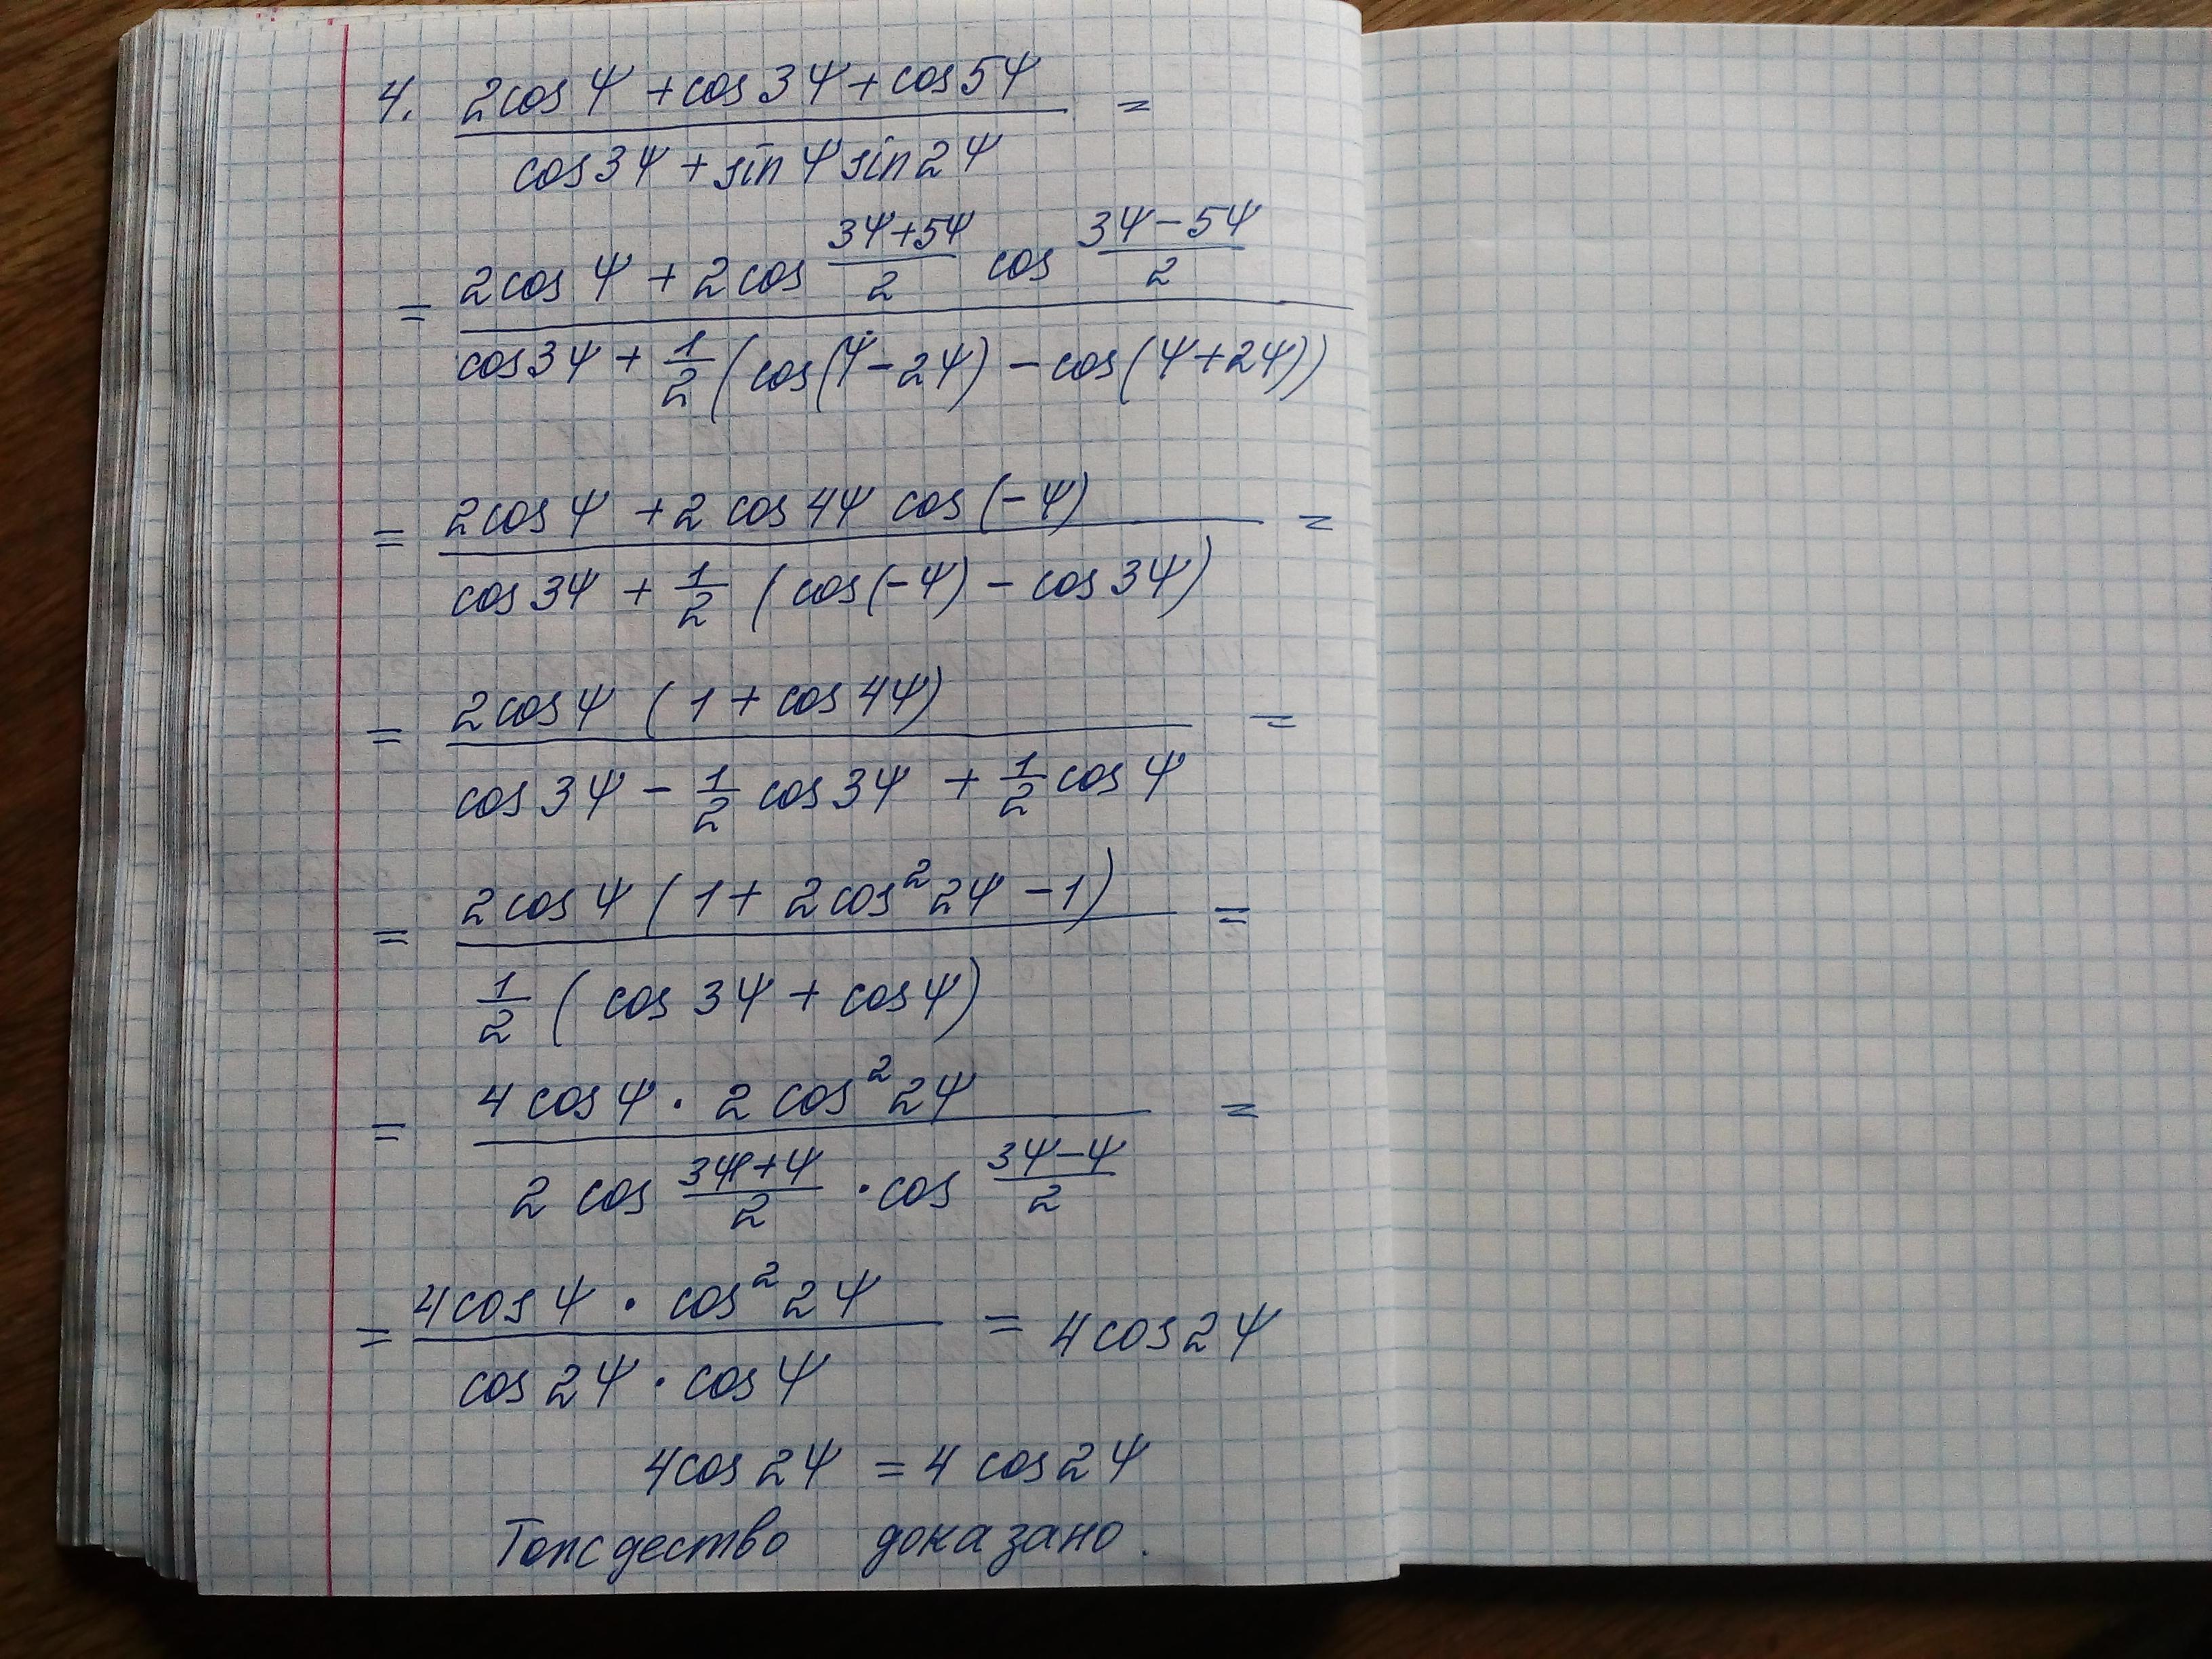 4. (2cosψ + cos3ψ + cos5ψ) / (cos3ψ + sinψ sin2ψ) =
= (2cosψ + 2cos (3ψ+5ψ)/2 cos (3ψ−5ψ)/2) / (cos3ψ + 1/2 (cos(ψ−2ψ) − cos(ψ+2ψ)))
= (2cosψ + 2cos4ψ cos(−ψ)) / (cos3ψ + 1/2 (cos(−ψ) − cos3ψ)) =
= (2cosψ (1 + cos4ψ)) / (cos3ψ − 1/2 cos3ψ + 1/2 cosψ) =
= (2cosψ (1 + 2cos²2ψ − 1)) / (1/2 (cos3ψ + cosψ)) =
= (4cosψ · 2cos²2ψ) / (2cos (3ψ+ψ)/2 · cos (3ψ−ψ)/2) =
= (4cosψ · cos²2ψ) / (cos2ψ · cosψ) = 4cos2ψ
4cos2ψ = 4cos2ψ
Тождество доказано.